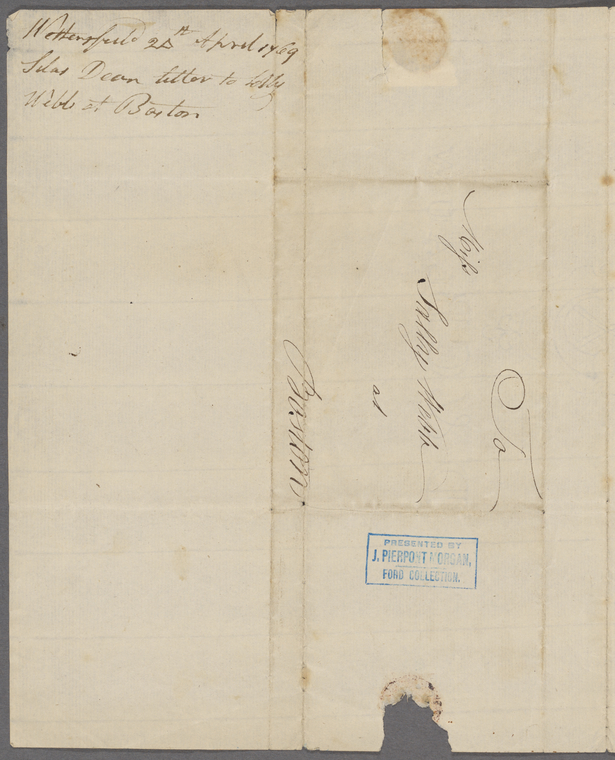 Wethersfield 24th April 1769
Silas Dean letter to Sally
Webb at Boston
To
Miss
Sally Webb
at
Boston
PRESENTED BY
J. PIERPONT MORGAN,
FORD COLLECTION.